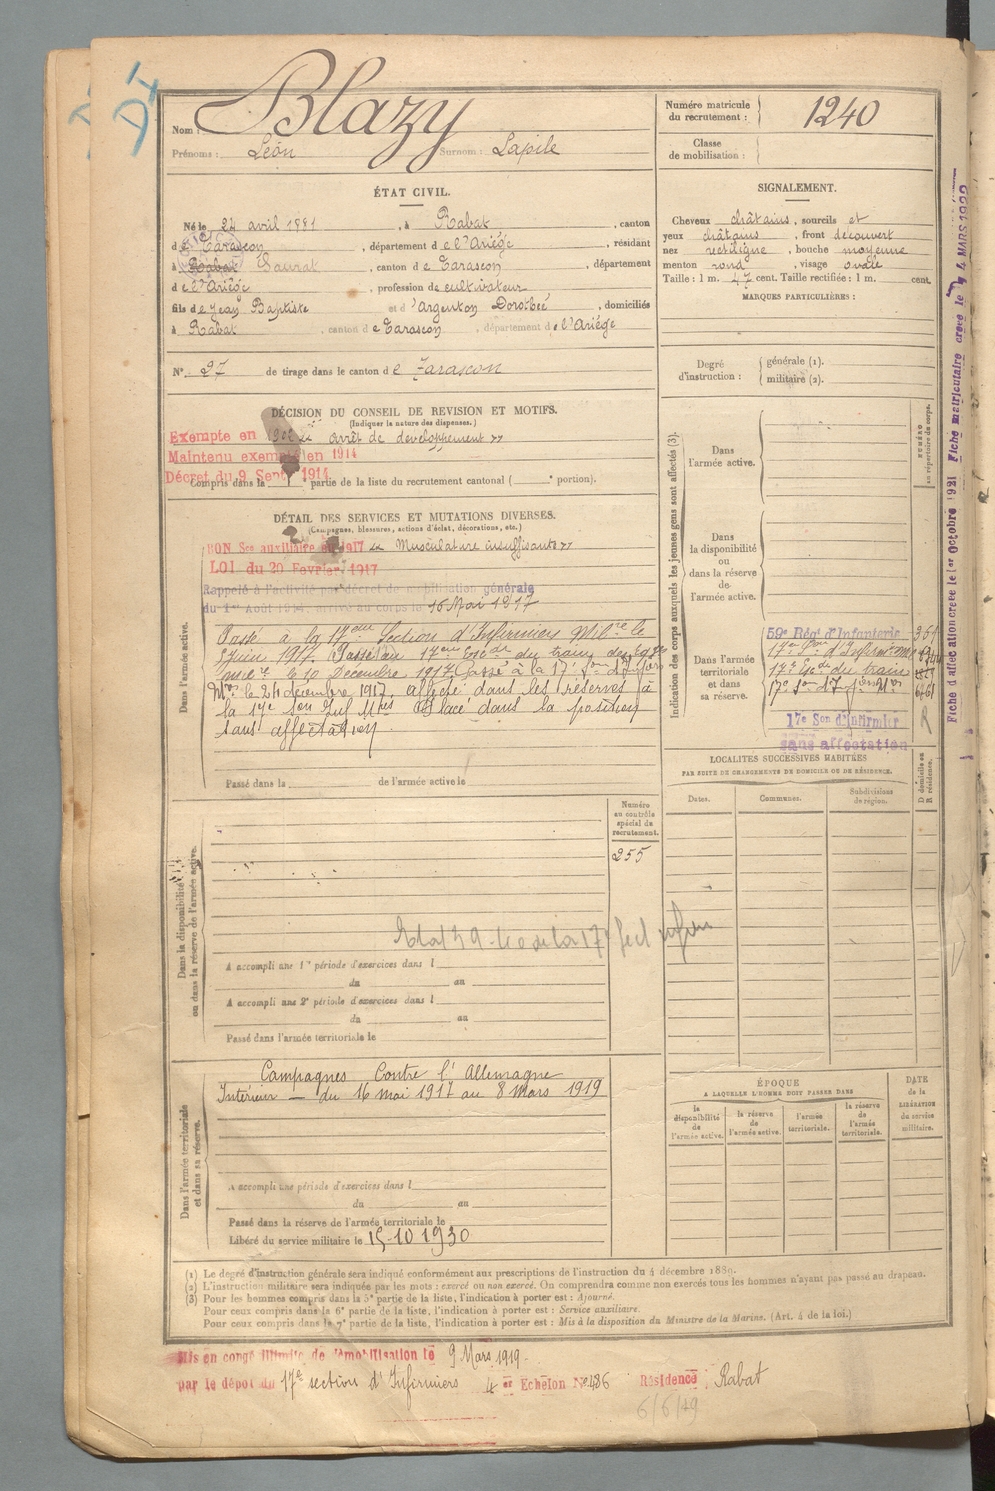 Nom : Blazy
Prénoms : Léon Surnom : Lapile
Numéro matricule
du recrutement : 1240
Classe
de mobilisation :
ÉTAT CIVIL.
Né le 24 avril 1881, à Rabat, canton
de Tarascon, département de l'Ariège, résidant
à Rabat Saurat, canton de Tarascon, département
de l'Ariège, profession de cultivateur
fils de Jean Baptiste et d'Argenton Dorothée, domiciliés
à Rabat, canton de Tarascon, département de l'Ariège
N° 27 de tirage dans le canton de Tarascon
SIGNALEMENT.
Cheveux châtains, sourcils et
yeux châtains, front découvert
nez rectiligne, bouche moyenne
menton rond, visage ovale
Taille : 1 m. 47 cent. Taille rectifiée : 1 m. cent.
MARQUES PARTICULIÈRES :
Degré
d'instruction : générale (1).
militaire (2).
DÉCISION DU CONSEIL DE REVISION ET MOTIFS.
(Indiquer la nature des dispenses.)
Exempté en 1902 « arrêt de développement »
Maintenu exempté en 1914
Décret du 9 Sept 1914.
Compris dans la partie de la liste du recrutement cantonal ( portion).
DÉTAIL DES SERVICES ET MUTATIONS DIVERSES.
(Campagnes, blessures, actions d'éclat, décorations, etc.)
BON Ses auxiliaire en 1917 « Musculature insuffisante »
LOI du 20 Février 1917
Rappelé à l'activité par décret de mobilisation générale
du 1er Août 1914, arrivé au corps le 16 Mai 1917
Passé à la 17eme Section d'Infirmiers Milres le
Juin 1917. Passé au 17eme Escdr du train des Eqges
le 10 Décembre 1917. Passé à la 17e Son d'Infiers
Mres le 24 décembre 1917. affecté dans les réserves à
la 17e Son Inf Mres Placé dans la position
sans affectation
Dans l'armée active.
Passé dans la de l'armée active le
Indication des corps auxquels les jeunes gens sont affectés (3).
NUMÉRO
au répertoire du corps.
Dans
l'armée active.
Dans
la disponibilité
ou
dans la réserve
de
l'armée active.
Dans l'armée
territoriale
et dans
sa réserve.
59e Régt d'Infanterie
17e Escdr du train
17e Son d'Infiers Mres
17e Son d'Infirmier R
sans affectation
Fiche d'affectation créée le 1er Octobre 1921 Fiche matriculaire créée le 4 MARS 1922
LOCALITÉS SUCCESSIVES HABITÉES
PAR SUITE DE CHANGEMENTS DE DOMICILE OU DE RÉSIDENCE.
Dates. Communes. Subdivisions
de région.
D domicile ou
R résidence.
Numéro
au contrôle
spécial du
recrutement.
255
Dans la disponibilité
ou dans la réserve de l'armée active.
A accompli une 1re période d'exercices dans l
du au
A accompli une 2e période d'exercices dans l
du au
Passé dans l'armée territoriale le
Dans l'armée territoriale
et dans sa réserve.
Campagnes Contre l'Allemagne
Intérieur — du 16 mai 1917 au 8 Mars 1919
A accompli une période d'exercices dans l
du au
Passé dans la réserve de l'armée territoriale le
Libéré du service militaire le 15-10 1930
ÉPOQUE
A LAQUELLE L'HOMME DOIT PASSER DANS
la
disponibilité
de
l'armée active.
la réserve
de
l'armée active.
l'armée
territoriale.
la réserve
de
l'armée
territoriale.
DATE
de la
LIBÉRATION
du service
militaire.
(1) Le degré d'instruction générale sera indiqué conformément aux prescriptions de l'instruction du 4 décembre 1889.
(2) L'instruction militaire sera indiquée par les mots : exercé ou non exercé. On comprendra comme non exercés tous les hommes n'ayant pas passé au drapeau.
(3) Pour les hommes compris dans la 5e partie de la liste, l'indication à porter est : Ajourné.
Pour ceux compris dans la 6e partie de la liste, l'indication à porter est : Service auxiliaire.
Pour ceux compris dans la 7e partie de la liste, l'indication à porter est : Mis à la disposition du Ministre de la Marine. (Art. 4 de la loi.)
Mis en congé illimité de démobilisation le 9 Mars 1919.
par le dépôt du 17e section d'Infirmiers 4er Echelon No 436 Résidence Rabat
6/6/49